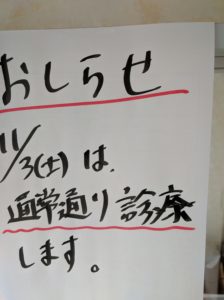 おしらせ
11/3(土)は、
通常通り診療
します。